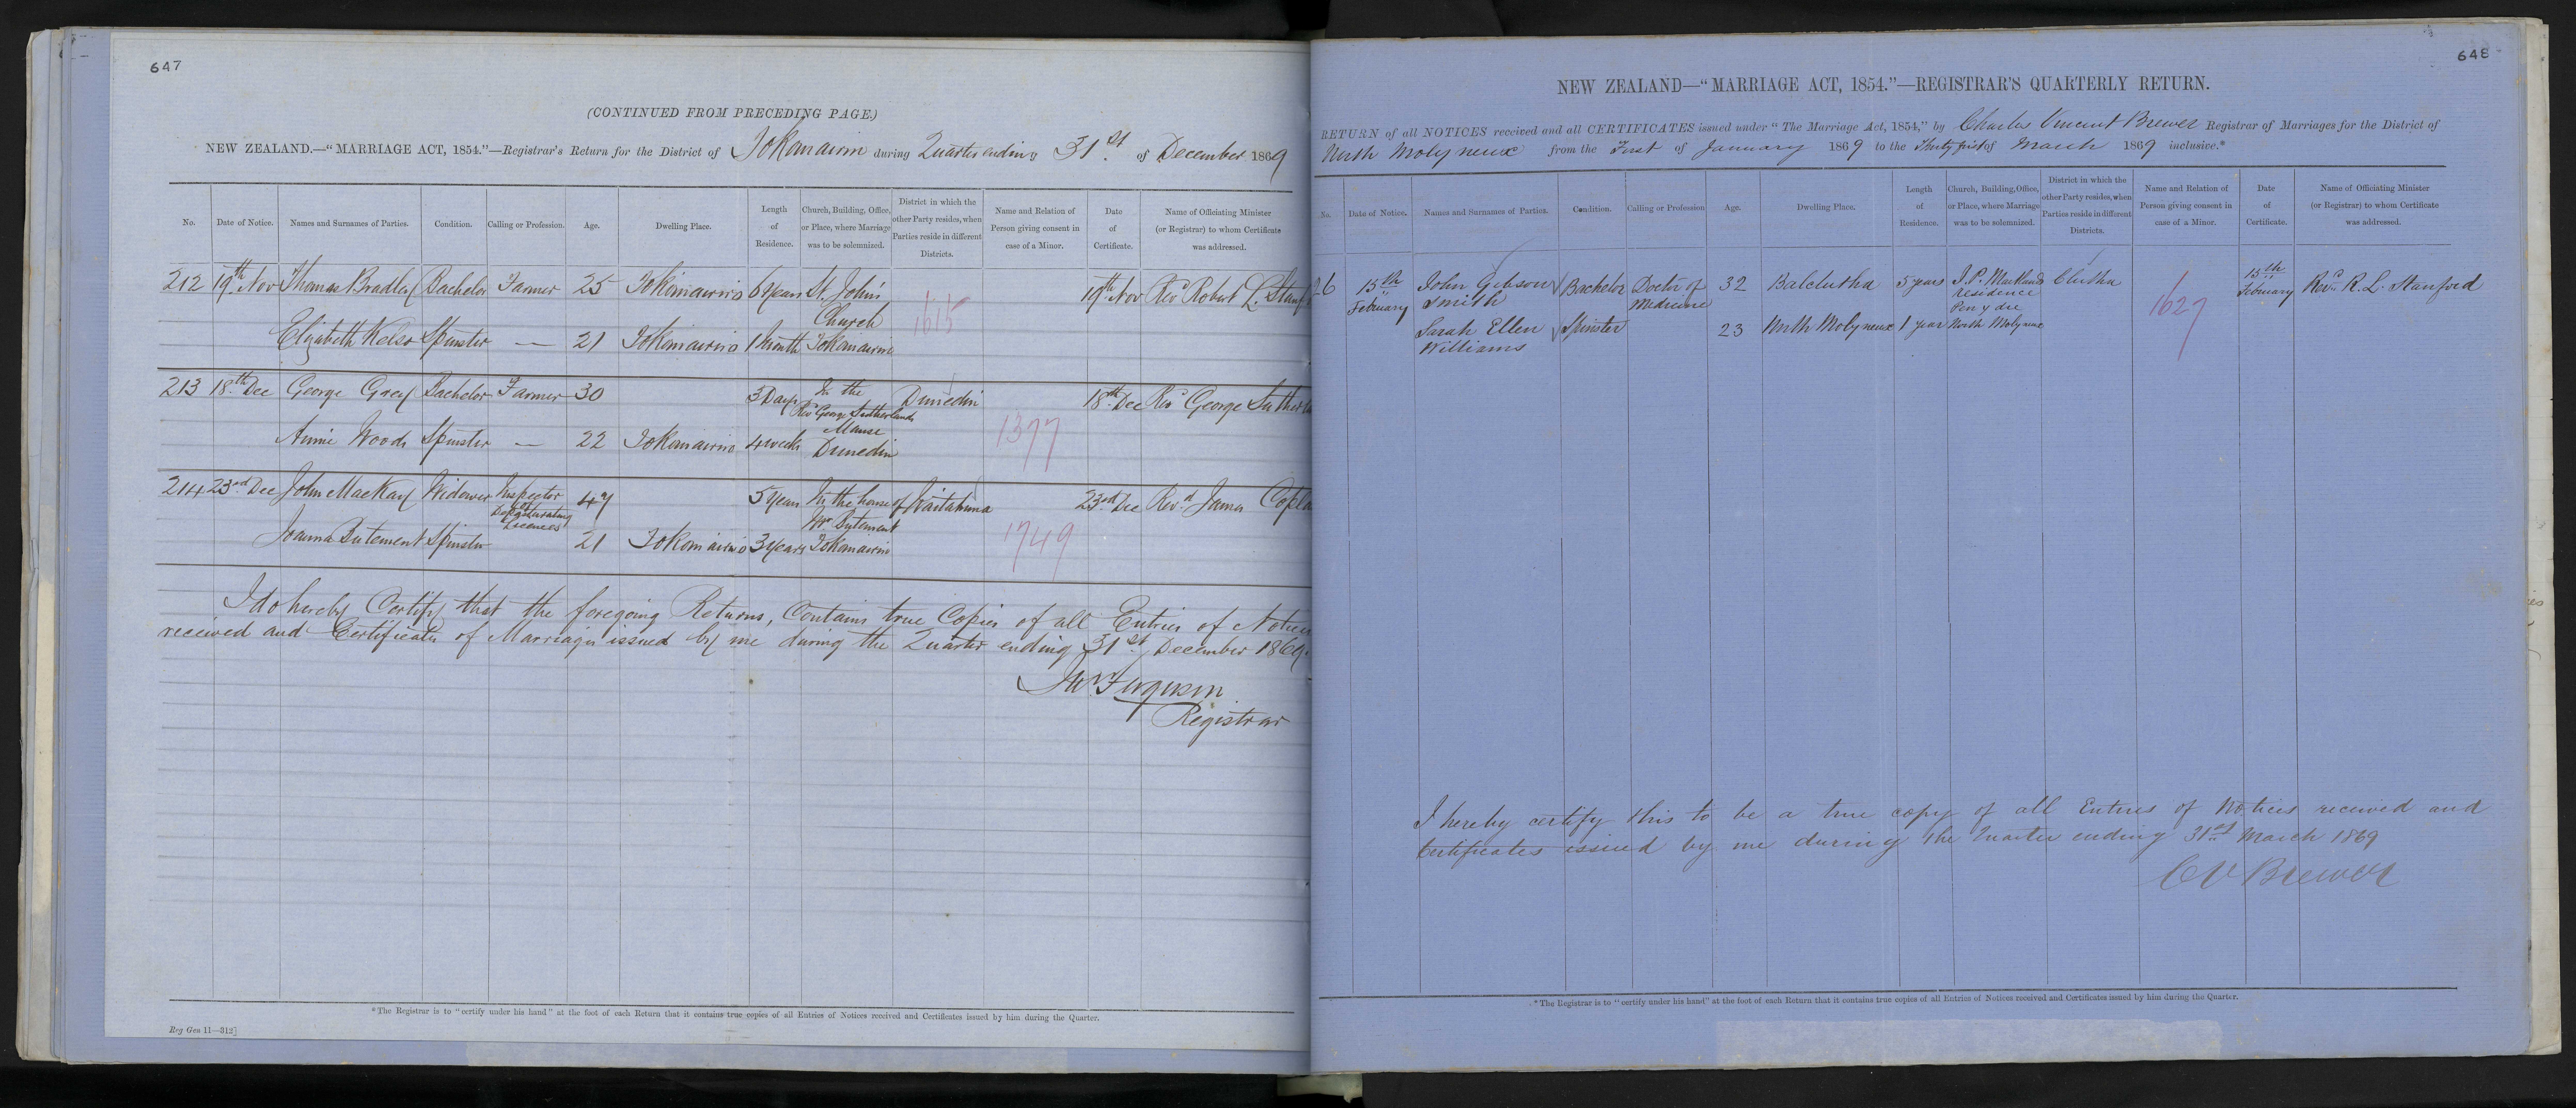 647
(CONTINUED FROM PRECEDING PAGE.)
NEW ZEALAND.—"MARRIAGE ACT, 1854."—Registrar's Return for the District of Tokomairiro during Quarter ending 31st of December 1869
No. Date of Notice. Names and Surnames of Parties. Condition. Calling or Profession. Age. Dwelling Place. Length of Residence. Church, Building, Office, or Place, where Marriage was to be solemnized. District in which the other Party resides, when Parties reside in different Districts. Name and Relation of Person giving consent in case of a Minor. Date of Certificate. Name of Officiating Minister (or Registrar) to whom Certificate was addressed.
212 19th Nov Thomas Bradley Bachelor Farmer 25 Tokomairiro 6 Years St. John's 19th Nov Revd Robert L. Stanf
Church 1615
Elizabeth Kelso Spinster — 21 Tokomairiro 1 Month Tokomairiro
213 18th Dec George Grey Bachelor Farmer 30 3 Days In the Dunedin 18th Dec Revd George Suther
Revd George Sutherlands
Manse
Annie Woods Spinster — 22 Tokomairiro 4 weeks Dunedin 1377
214 23rd Dec John MacKay Widower Inspector 47 5 Years In the house of Waitahuna 23rd Dec Revd James Copla
of Depasturating Licences Mr Butement
Joanna Butement Spinster 21 Tokomairiro 3 Years Tokomairiro 1749
I do hereby Certify that the foregoing Returns, Contains true Copies of all Entries of Notices
received and Certificates of Marriages issued by me during the Quarter ending 31st December 1869.
Ferguson
Registrar
*The Registrar is to "certify under his hand" at the foot of each Return that it contains true copies of all Entries of Notices received and Certificates issued by him during the Quarter.
Reg Gen 11—312]
648
NEW ZEALAND—"MARRIAGE ACT, 1854."—REGISTRAR'S QUARTERLY RETURN.
RETURN of all NOTICES received and all CERTIFICATES issued under "The Marriage Act, 1854," by Charles Vincent Brewer Registrar of Marriages for the District of
North Molyneux from the First of January 1869 to the Thirty first of March 1869 inclusive.*
No. Date of Notice. Names and Surnames of Parties. Condition. Calling or Profession Age. Dwelling Place. Length of Residence. Church, Building, Office, or Place, where Marriage was to be solemnized. District in which the other Party resides, when Parties reside in different Districts. Name and Relation of Person giving consent in case of a Minor. Date of Certificate. Name of Officiating Minister (or Registrar) to whom Certificate was addressed.
26 15th February John Gibson Smith Bachelor Doctor of Medicine 32 Balclutha 5 years J. P. Maitlands residence Pen y dre Clutha 1627 15th February Revd R. L. Stanford
Sarah Ellen Williams Spinster 23 North Molyneux 1 year North Molyneux
I hereby certify this to be a true copy of all Entries of Notices received and
Certificates issued by me during the Quarter ending 31st March 1869
C V Brewer
*The Registrar is to "certify under his hand" at the foot of each Return that it contains true copies of all Entries of Notices received and Certificates issued by him during the Quarter.